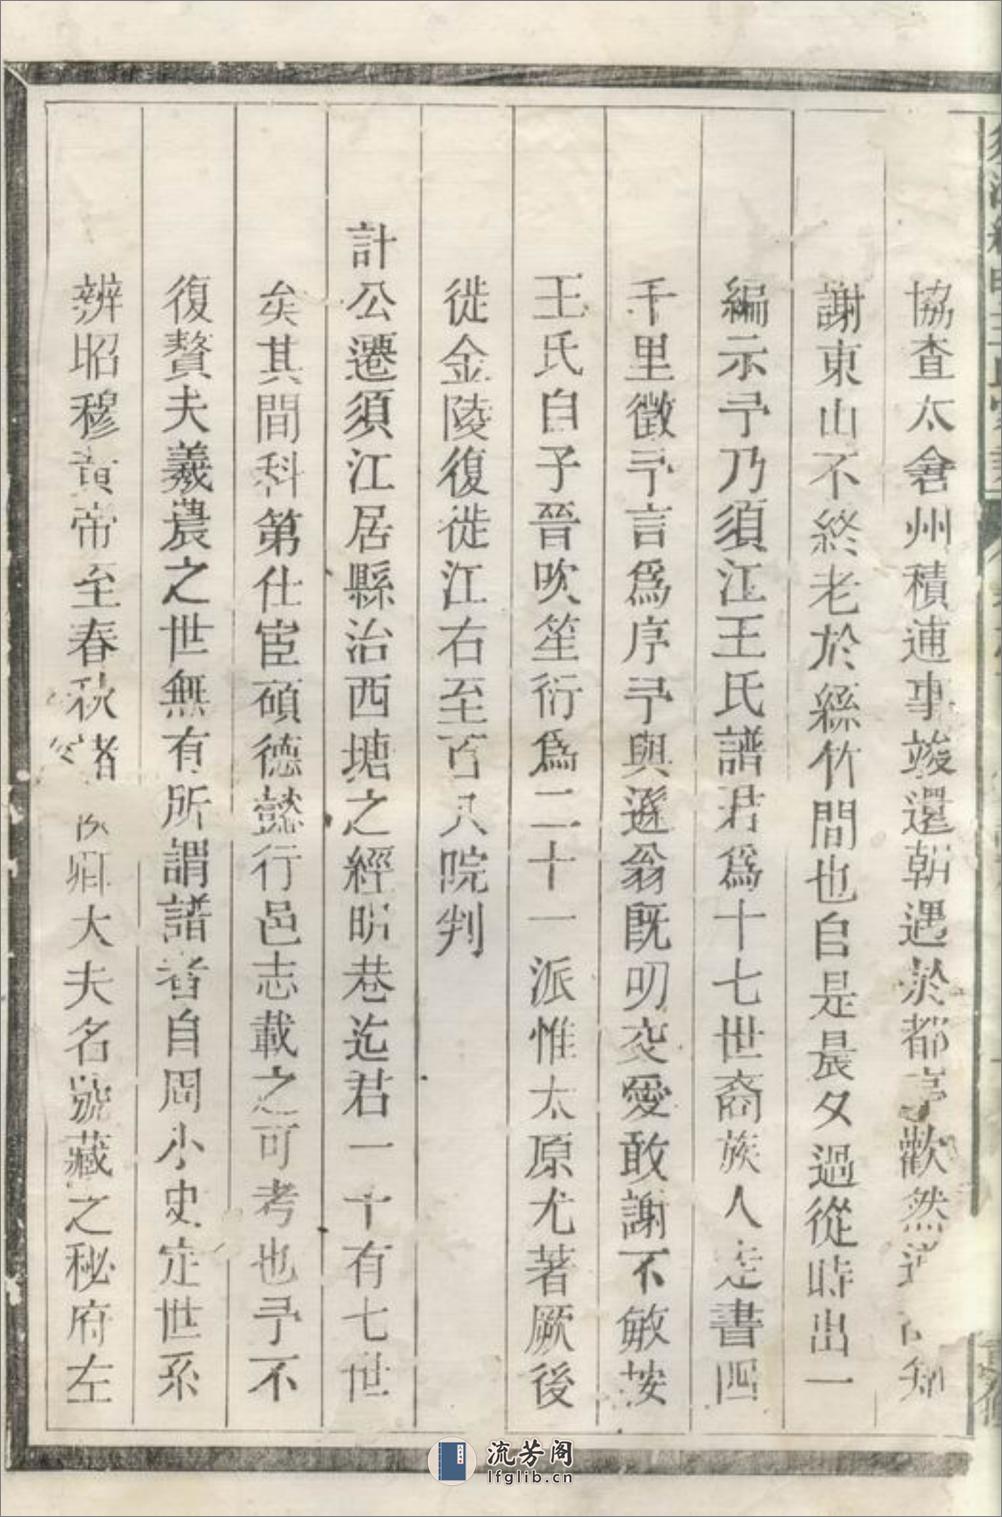 協查太倉州積逋事竣還朝遇於都亭歡然知
謝東山不終老於絲竹間也自是晨夕過從時出一
編示予乃須江王氏譜君爲十七世裔族人走書四
千里徵予言爲序予與遜翁既叨交愛敢謝不敏按
王氏自子晉吹笙衍爲二十一派惟太原尤著厥後
徙金陵復徙江右至百八院判
計公遷須江居縣治西塘之經明巷迄君一十有七世
矣其間科第仕宦碩德懿行邑志載之可考也予不
復贅夫羲農之世無有所謂譜者自周小史定世系
辨昭穆黃帝至春秋諸侯卿大夫名號藏之秘府左
流芳阁
lfglib.cn